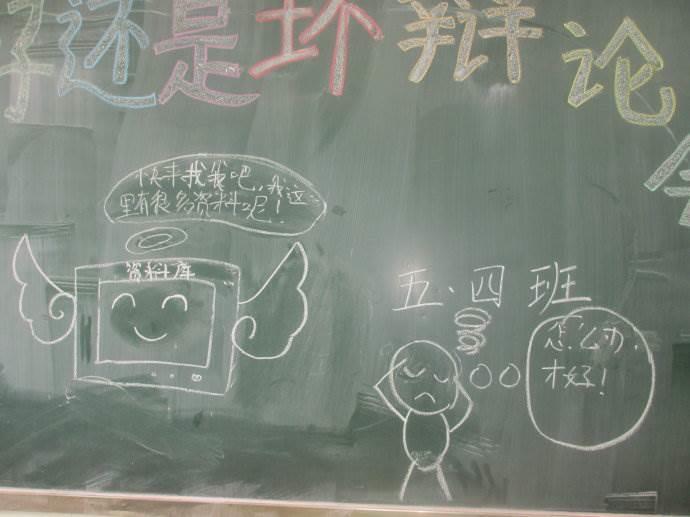 还是坏辩论
快来找我吧，我这
里有很多资料呢！
资料库
五.四班
怎么办，
才好！